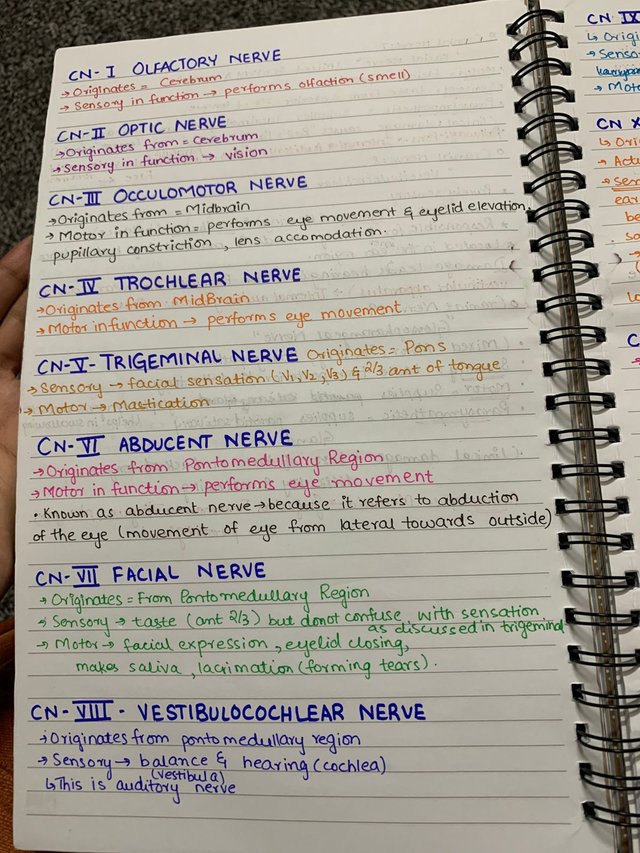 CN-I OLFACTORY NERVE
→ Originates = Cerebrum
→ Sensory in function → performs olfaction (smell)
CN-II OPTIC NERVE
→ Originates from = cerebrum
→ Sensory in function → vision
CN-III OCCULOMOTOR NERVE
→ Originates from = Midbrain
→ Motor in function = performs eye movement & eyelid elevation,
pupillary constriction, lens accomodation.
CN-IV TROCHLEAR NERVE
→ Originates from MidBrain
→ Motor in function → performs eye movement
CN-V-TRIGEMINAL NERVE Originates = Pons
→ Sensory → facial sensation (V1, V2, V3) & 2/3 ant of tongue
→ Motor → Mastication
CN-VI ABDUCENT NERVE
→ Originates from Pontomedullary Region
→ Motor in function → performs eye movement
• Known as abducent nerve → because it refers to abduction
of the eye (movement of eye from lateral towards outside)
CN-VII FACIAL NERVE
→ Originates = From Pontomedullary Region
→ Sensory → taste (ant 2/3) but donot confuse with sensation
as discussed in trigeminal
→ Motor → facial expression, eyelid closing,
makes saliva, lacrimation (forming tears).
CN-VIII-VESTIBULOCOCHLEAR NERVE
→ Originates from pontomedullary region
→ Sensory → balance & hearing (cochlea)
(vestibula)
↳ This is auditory nerve
CN IX
CN X